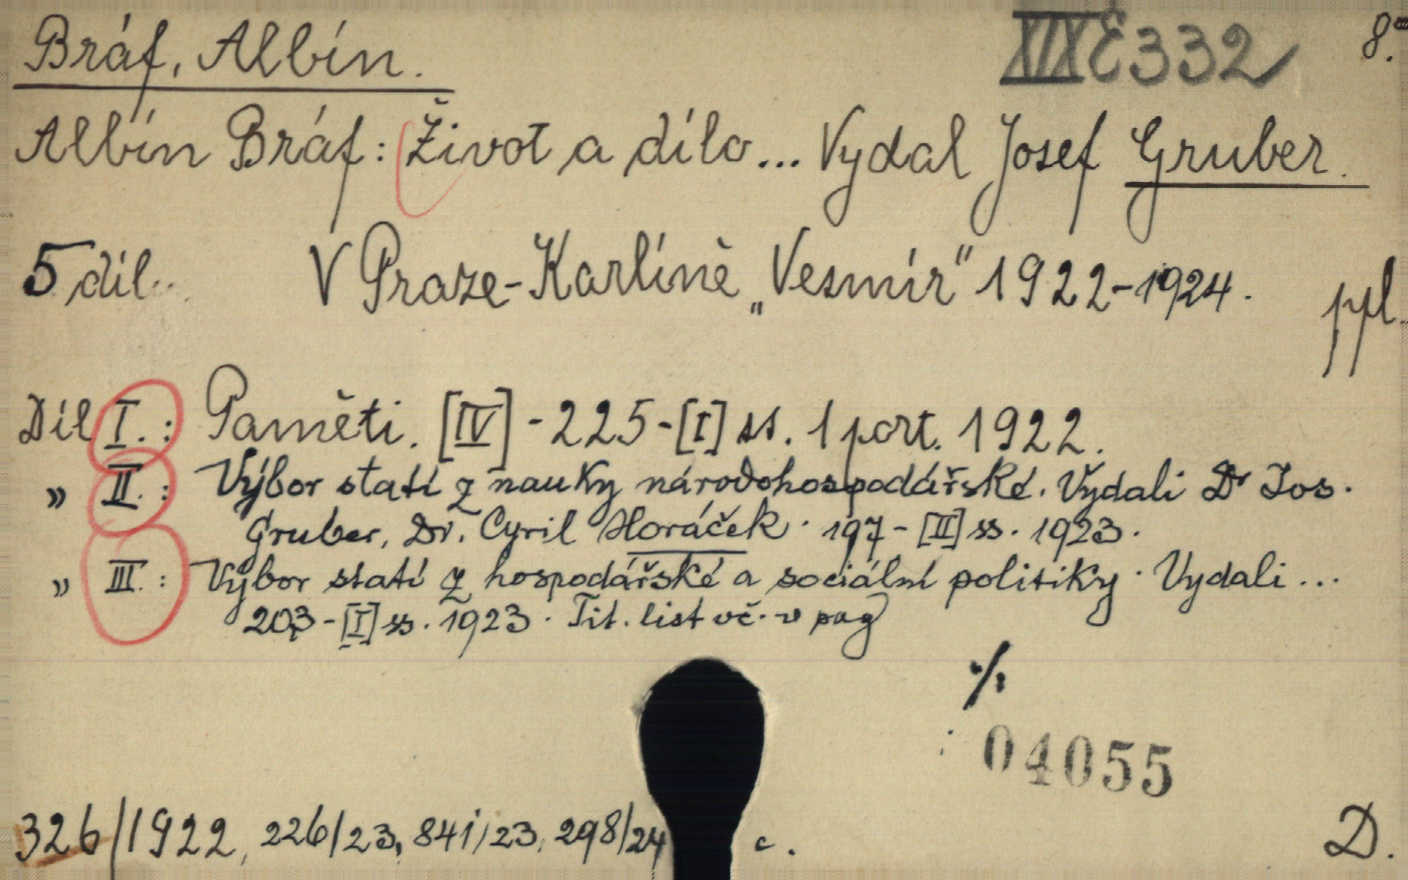 Bráf, Albín. XIX E 332 8.°
Albín Bráf: Život a dílo... Vydal Josef Gruber.
5 díl.. V Praze-Karlíně „Vesmír" 1922-1924. ppl.
Díl I.: Paměti. [IV] - 225-[I] ss. 1 port. 1922.
„ II.: Výbor statí z nauky národohospodářské. Vydali Dr Jos.
Gruber, Dr. Cyril Horáček. 197-[II] ss. 1923.
„ III.: Výbor statí z hospodářské a sociální politiky. Vydali...
203-[I] ss. 1923. Tit. list vč. v pag
./.
04055
326/1922, 226/23, 841/23, 298/24 c. D.